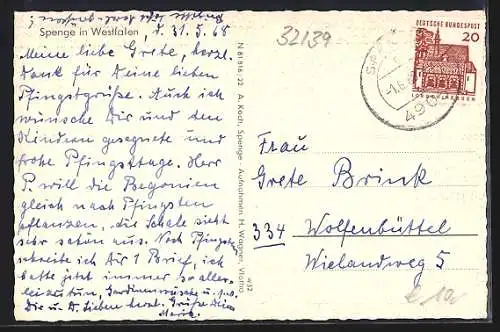 Spenge in Westfalen, d. 31.5.68
Meine liebe Grete, herzl.
Dank für Deine lieben
Pfingstgrüße. Auch ich
wünsche Dir und den
Kindern gesegnete und
frohe Pfingsttage. Herr
P. will die Begonien
gleich nach Pfingsten
pflanzen, die Schale sieht
sehr schön aus. Nach Pfingsten
schreibe ich Dir 1 Brief, ich
hatte jetzt immer so aller-
lei zu tun, Gardinenwäsche u.s.w.
Dir u. d. Lieben herzl. Grüße Deine
N 81816/22 A. Koch, Spenge - Aufnahmen H. Wagner, Vlotho
32/39
DEUTSCHE BUNDESPOST
20
LORSCH/HESSEN
490
Frau
Grete Brink
334 Wolfenbüttel
Wielandweg 5